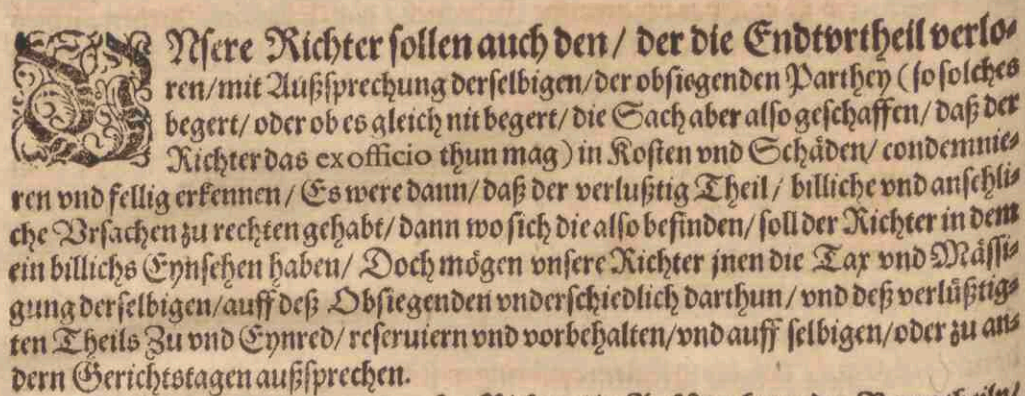 UNsere Richter sollen auch den / der die Endtvrtheil verlo⸗
ren/mit Außsprechung derselbigen/der obsiegenden Parthey (so solches
begert/ oder ob es gleich nit begert/ die Sach aber also geschaffen/ daß der
Richter das ex officio thun mag) in Kosten vnd Schäden/ condemnie⸗
ren vnd fellig erkennen / Es were dann/ daß der verlußtig Theil / billiche vnd ansehli⸗
che Vrsachen zu rechten gehabt/ dann wo sich die also befinden/ soll der Richter in dem
ein billichs Eynsehen haben/ Doch mögen vnsere Richter jnen die Tax vnd Mässi⸗
gung derselbigen/auff deß Obsiegenden vnderschiedlich darthun / vnd deß verlüßtig⸗
ten Theils Zu vnd Eynred/ reseruiern vnd vorbehalten/vnd auff selbigen/oder zu an⸗
dern Gerichtstagen außsprechen.